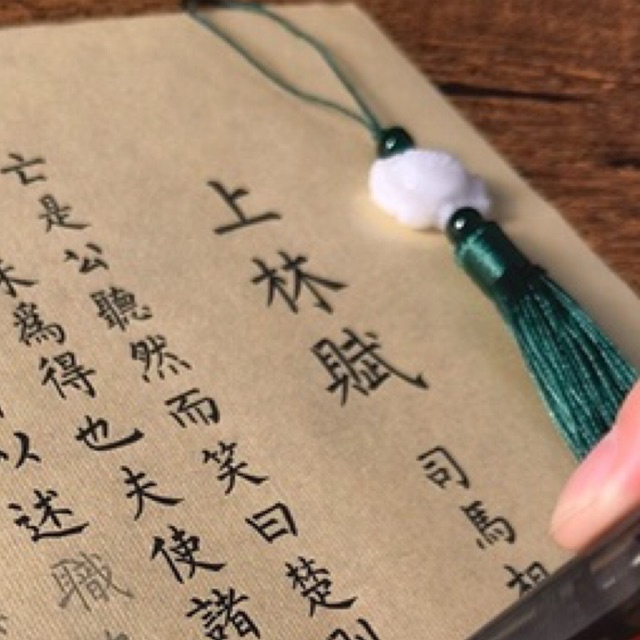 上林賦 司馬相
亡是公聽然而笑曰楚則
未爲得也夫使諸
以述職